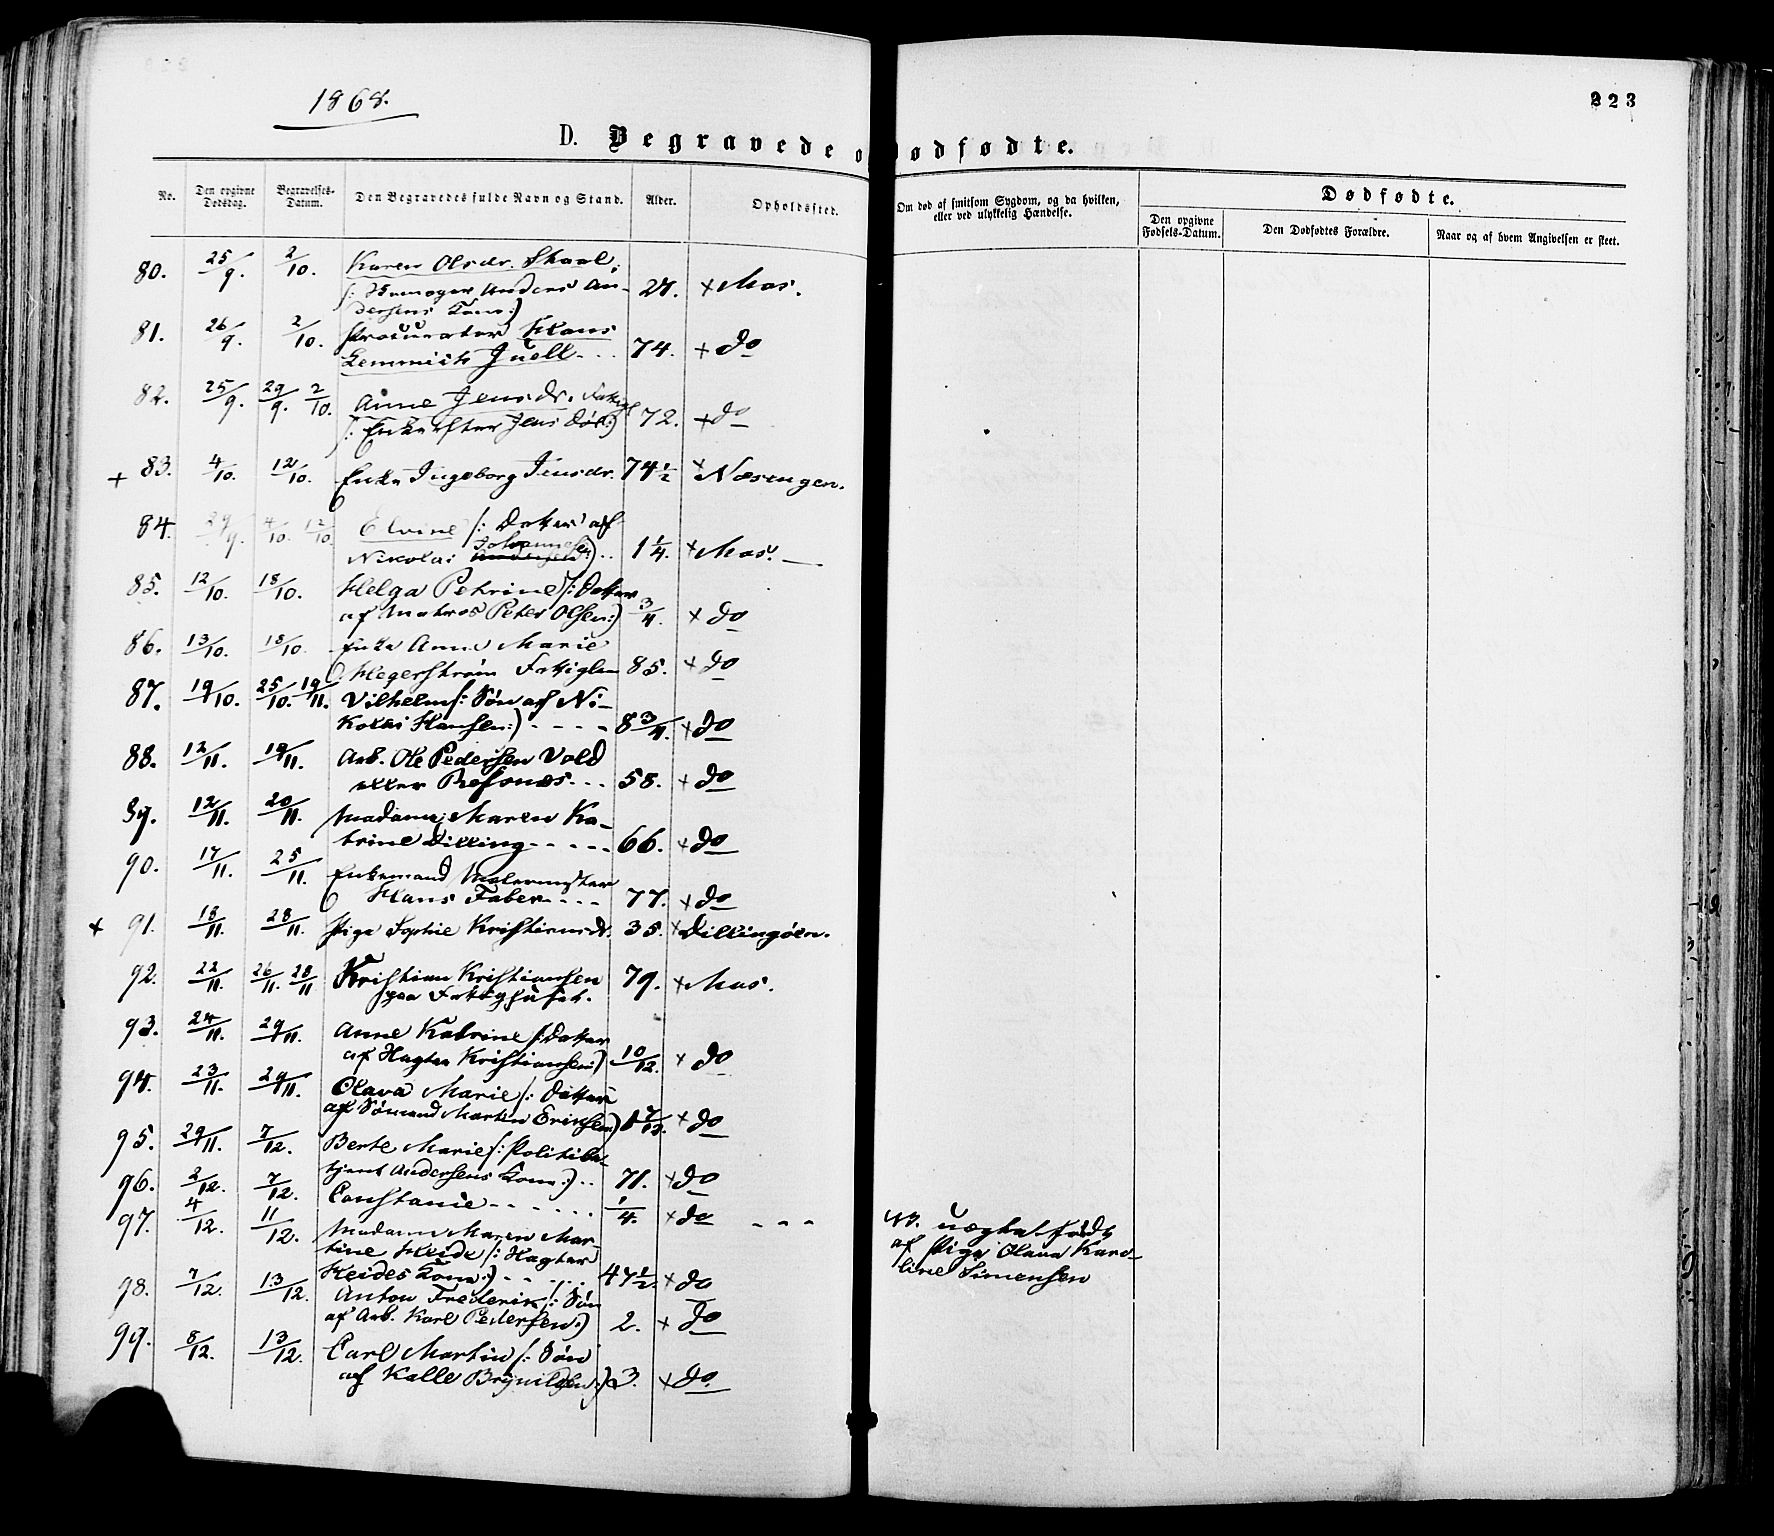 1868.
223
D. Begravede o
ødfødte.
No.
Den opgivne Dødsdag.
Begravelses-Datum.
Den Begravedes fulde Navn og Stand.
Alder.
Opholdssted.
Om død af smitsom Sygdom, og da hvilken, eller ved ulykkelig Hændelse.
Dødfødte.
Den opgivne Fødsels-Datum.
Den Dødfødtes Forældre.
Naar og af hvem Angivelsen er skeet.
80. 25/9. 2/10. Karen Olsdr. Skaol
Anders An-
dersens Kone:) 27. + Mos.
81. 26/9. 2/10. Procurator Hans
Lemmich Juell - - - 74. + do
82. 25/9. 29/9. 2/10. Anne Jensdr. Fattigl
(: Enke efter Jens Døl:) 72. + do
+ 83. 4/10. 12/10. Enke Ingeborg Jensdr. 74 1/2 + Næsengen.
84. 29/9. 4/10. 12/10. Elvine (: Datter af
Nikolai Johannesen:) . . 1 1/4. + Mos.
85. 12/10. 18/10. Helga Petrine (: Datter
af Matros Peter Olsen:) 3/4. + do
86. 13/10. 18/10. Enke Anne Marie
Hegerstrøm Fattiglem 85. + do
87. 19/10. 25/10. 19/11. Vilhelm (: Søn af Ni-
kolai Hansen:) - - - - 8 3/4. + do
88. 12/11. 19/11. Arb. Ole Pedersen Vold
eller Refsnæs. - - 58. + do
89. 12/11. 20/11. Madame Maren Ka-
trine Dilling - - - - - 66. + do
90. 17/11. 25/11. Enkemand Malermester
Hans Faber - - - - 77. + do
+ 91. 18/11. 28/11. Pige Sophie Kristiansdr. 35. + Dillingøen.
92. 22/11. 26/11. 28/11 Kristian Kristiansen
paa Fattighuset. 79. + Mos.
93. 24/11. 29/11. Anne Katrine (: Datter
af Hagten Kristiansen:) 10/12. + do
94. 23/11. 29/11. Olava Marie (: Datter
af Sømand Martin Eriksen:) 1 7/12. + do
95. 29/11. 7/12. Berte Marie (: Politibe-
tjent Andersens Kone:) . . 71. + do
96. 2/12. 7/12. Constanie - - - - - - 1/4. + do - - -
NB. uægte født
af Pige Olava Karo-
line Simensen
97. 4/12. 11/12. Madame Maren Mar-
tine Heide (: Hagter
Heides Kone:) - - - - 47 1/2. + do
98. 7/12. 13/12. Anton Frederik (: Søn
af Arb. Karl Pedersen:) 2. + do
99. 8/12. 13/12. Carl Martin (: Søn
af Kalle Brynildsen:) 3. + do.